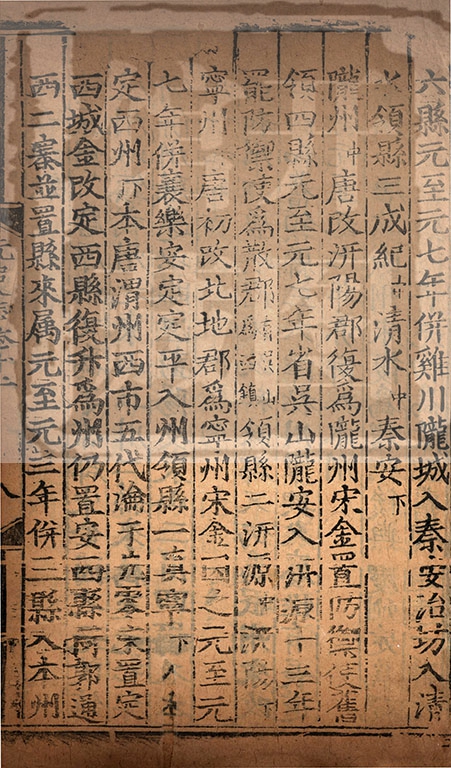 六縣元至元七年併雞川隴城入秦安治坊入清
水領縣三成紀清水中秦安下
隴州中唐改汧陽郡復爲隴州宋金置防禦使舊
領四縣元至元七年省吳山隴安入汧源十三年
罷防禦使爲散郡山爲西鎮領縣二汧源汧陽下
寧州唐初改北地郡爲寧州宋金因之元至元
七年併襄樂安定定平入州領縣一真寧下
定西州下本唐渭州西市五代淪于宋置定
西城金改定西縣復升爲州仍置安西縣倚郭通
西二寨並置縣來属元至元三年併二縣入本州
八